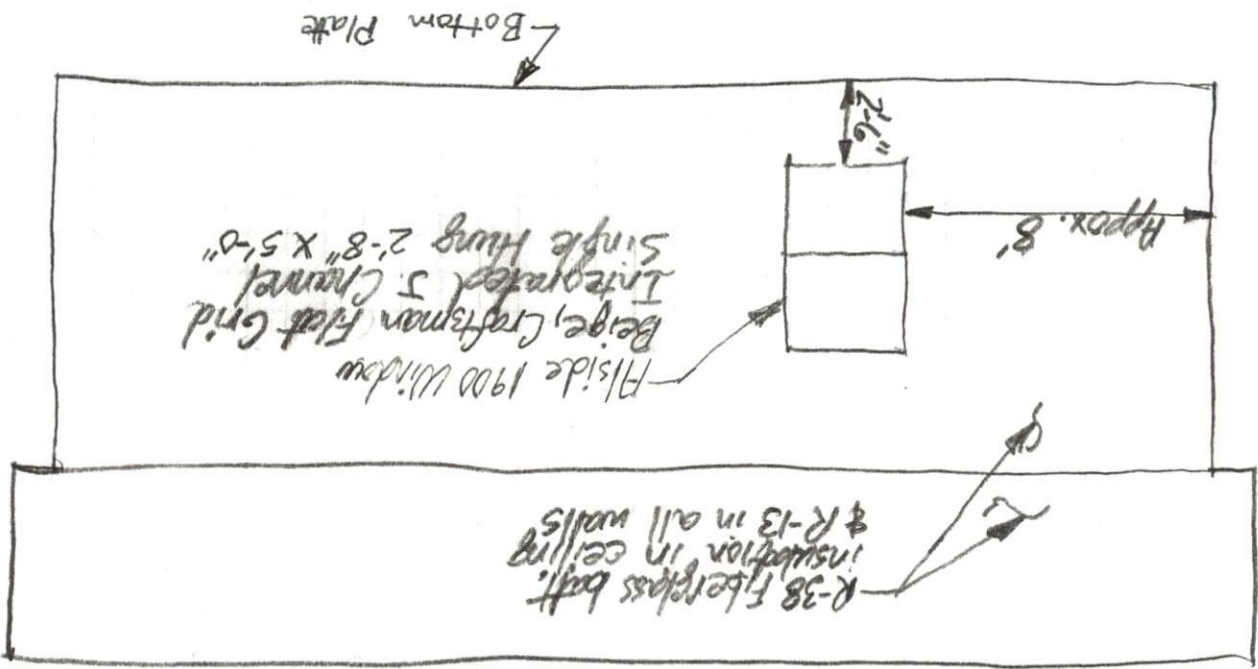 R-38 Fiberglass batt.
insulation in ceiling
& R-13 in all walls
Alside 1900 Window
Beige, Craftsman Flat Grid
Integrated J. Channel
Single Hung 2'-8" X 5'-0"
Approx. 8'
2'-6"
Bottom Plate